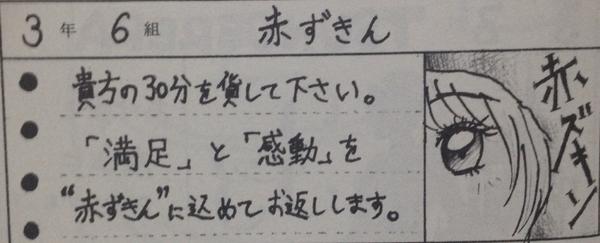 3年 6組 赤ずきん
貴方の30分を貸して下さい。
「満足」と「感動」を
“赤ずきん”に込めてお返しします。
赤ズキン